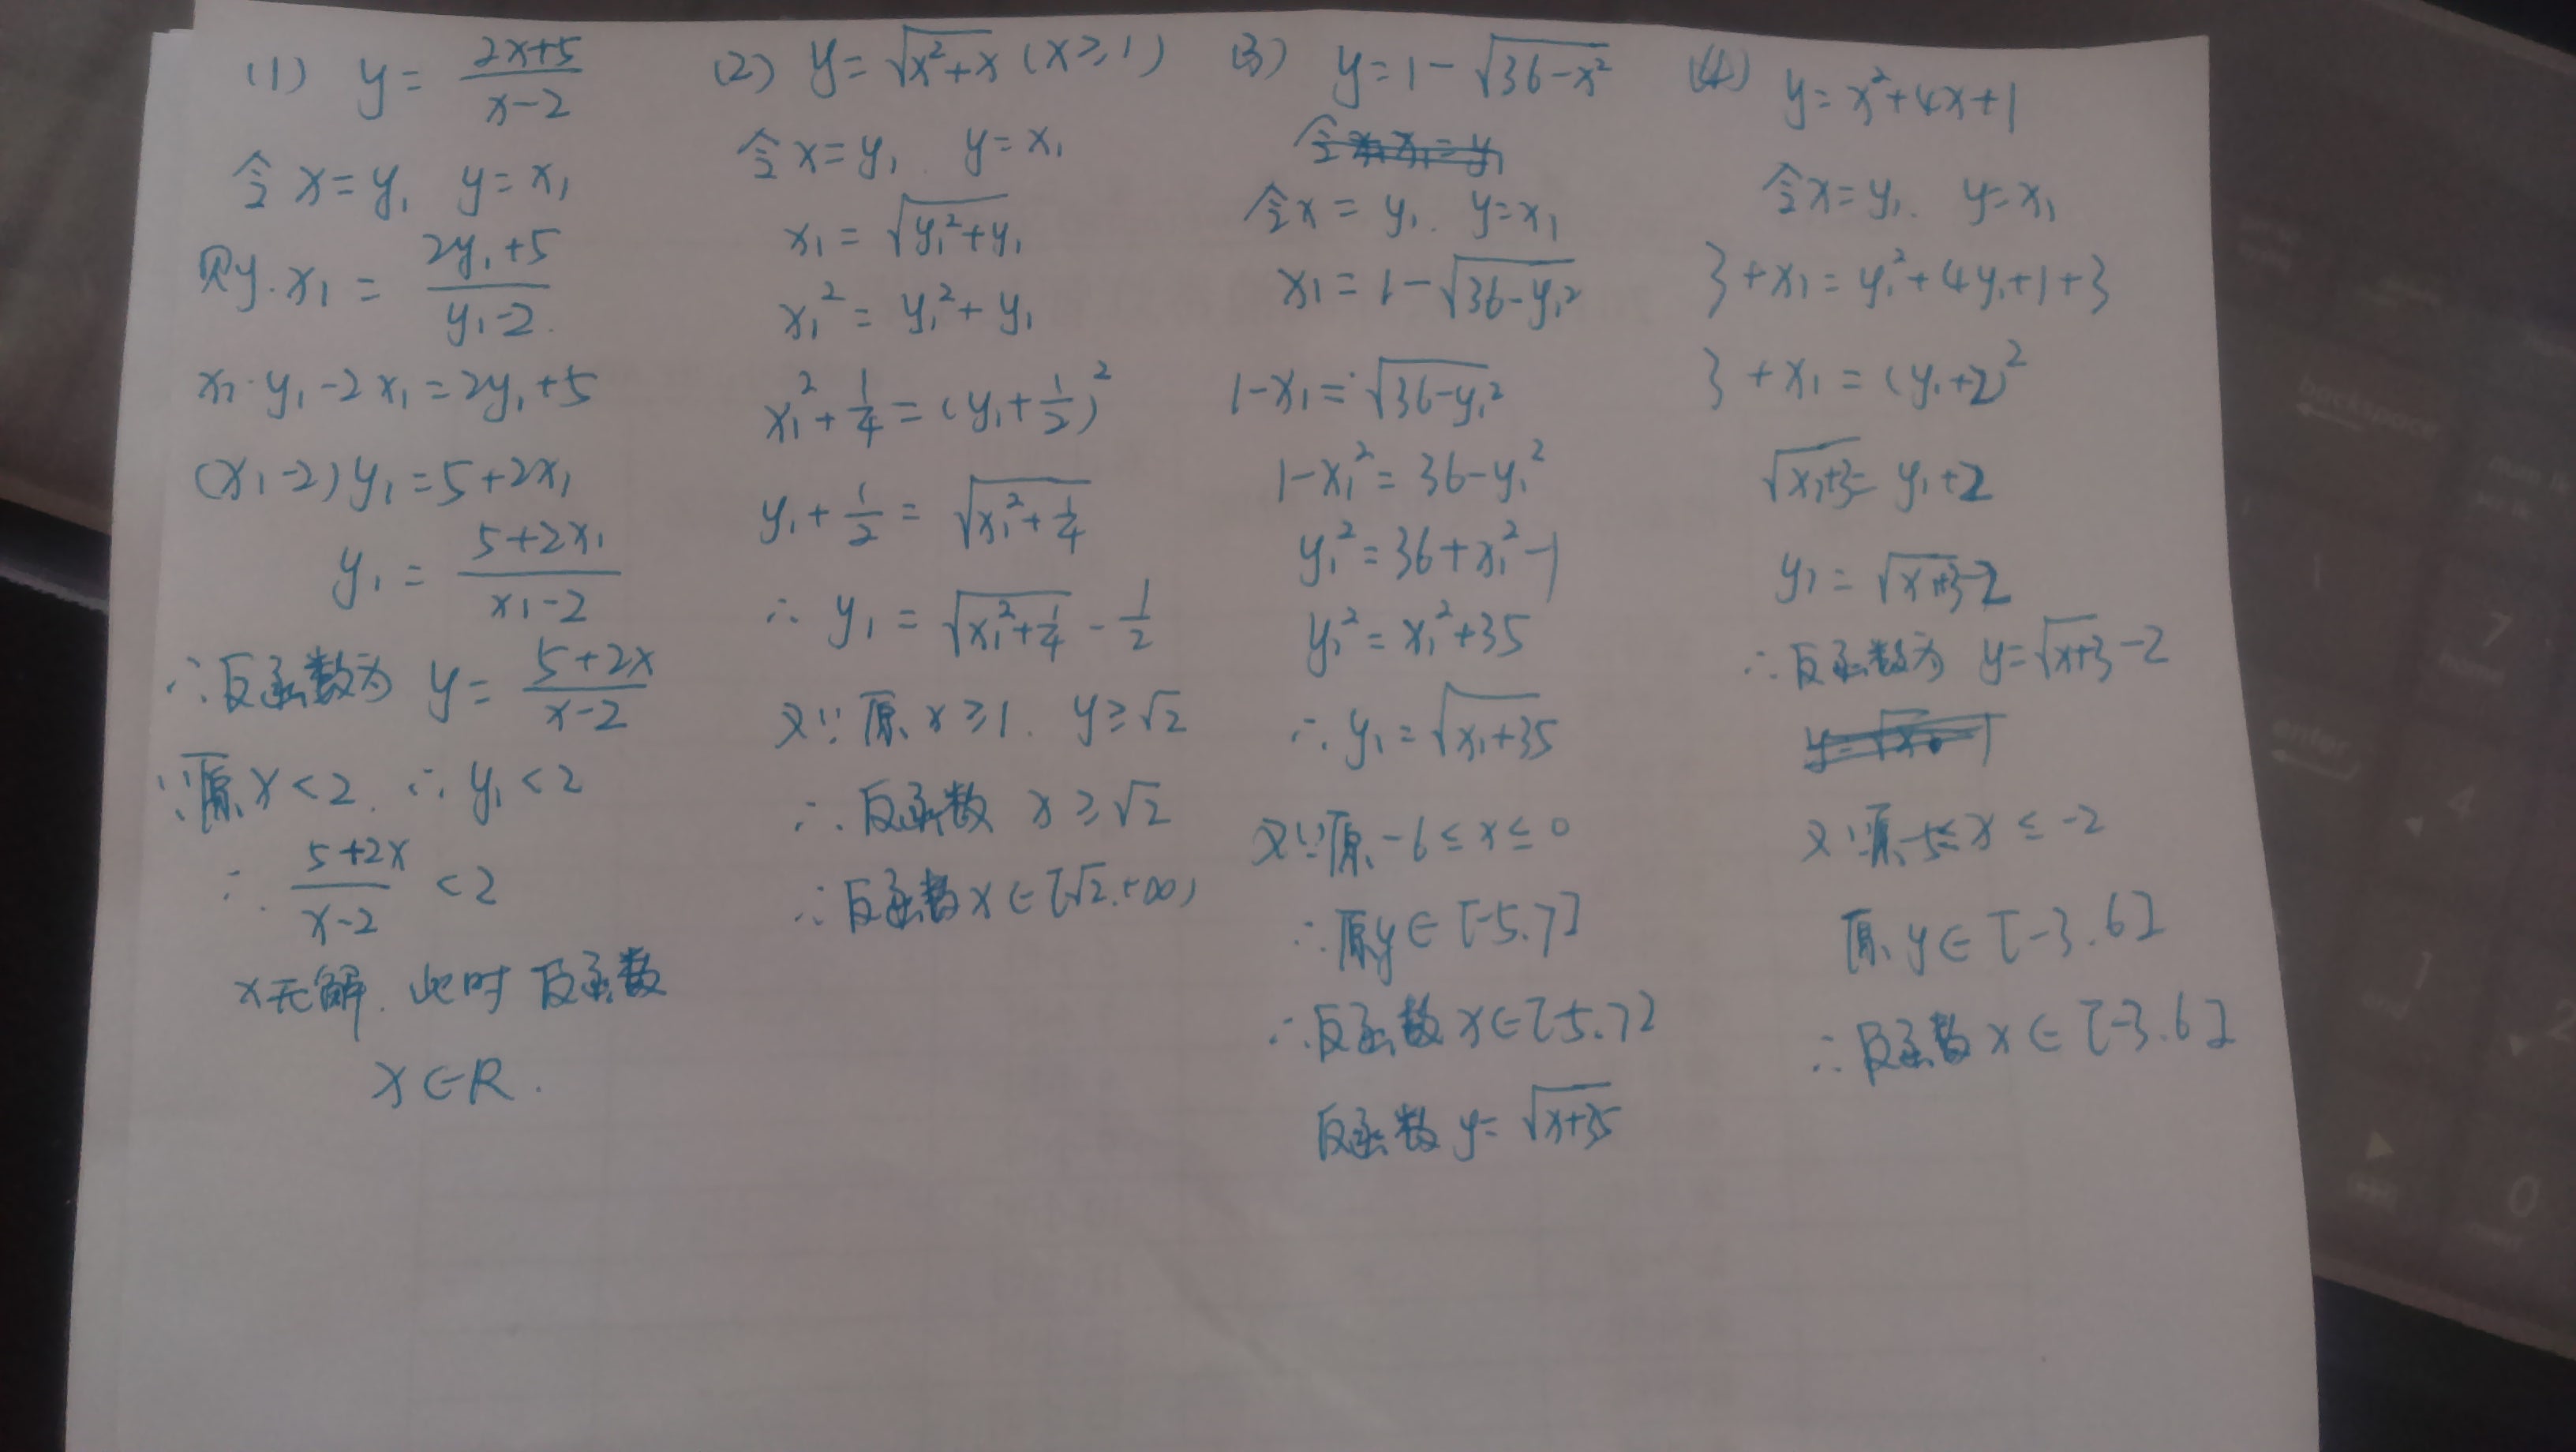 (1) y = \frac{2x+5}{x-2}
令 x = y₁ y = x₁
则 x₁ = \frac{2y₁+5}{y₁-2}
x₁·y₁-2x₁=2y₁+5
(x₁-2)y₁=5+2x₁
y₁ = \frac{5+2x₁}{x₁-2}
∴反函数为 y = \frac{5+2x}{x-2}
∵原 x<2. ∴ y₁<2
∴ \frac{5+2x}{x-2} <2
x无解. 此时 反函数
x∈R.
(2) y = \sqrt{x²+x} (x≥1)
令 x=y₁ y=x₁
x₁ = \sqrt{y₁²+y₁}
x₁² = y₁²+y₁
x₁²+\frac{1}{4} = (y₁+\frac{1}{2})²
y₁+\frac{1}{2} = \sqrt{x₁²+\frac{1}{4}}
∴ y₁ = \sqrt{x₁²+\frac{1}{4}} - \frac{1}{2}
又∵ 原 x≥1. y≥√2
∴ 反函数 x≥√2
∴ 反函数 x∈[√2,+∞)
(3) y=1-\sqrt{36-x²}
令x = y₁. y=x₁
x₁=1-\sqrt{36-y₁²}
1-x₁=\sqrt{36-y₁²}
1-x₁²=36-y₁²
y₁²=36+x₁²-1
y₁²=x₁²+35
∴ y₁=\sqrt{x₁+35}
又∵原 -6≤x≤0
∴原y∈[-5.7]
∴反函数 x∈[-5.7]
反函数 y=\sqrt{x+35}
(4) y=x²+4x+1
令x=y₁. y=x₁
3+x₁=y₁²+4y₁+1+3
3+x₁=(y₁+2)²
\sqrt{x₁+3}=y₁+2
y₁=\sqrt{x₁+3}-2
∴反函数为 y=\sqrt{x+3}-2
又∵原-5≤x≤-2
原 y∈[-3.6]
∴反函数 x∈[-3.6]
backspace
enter
7
4
1
end
2
0